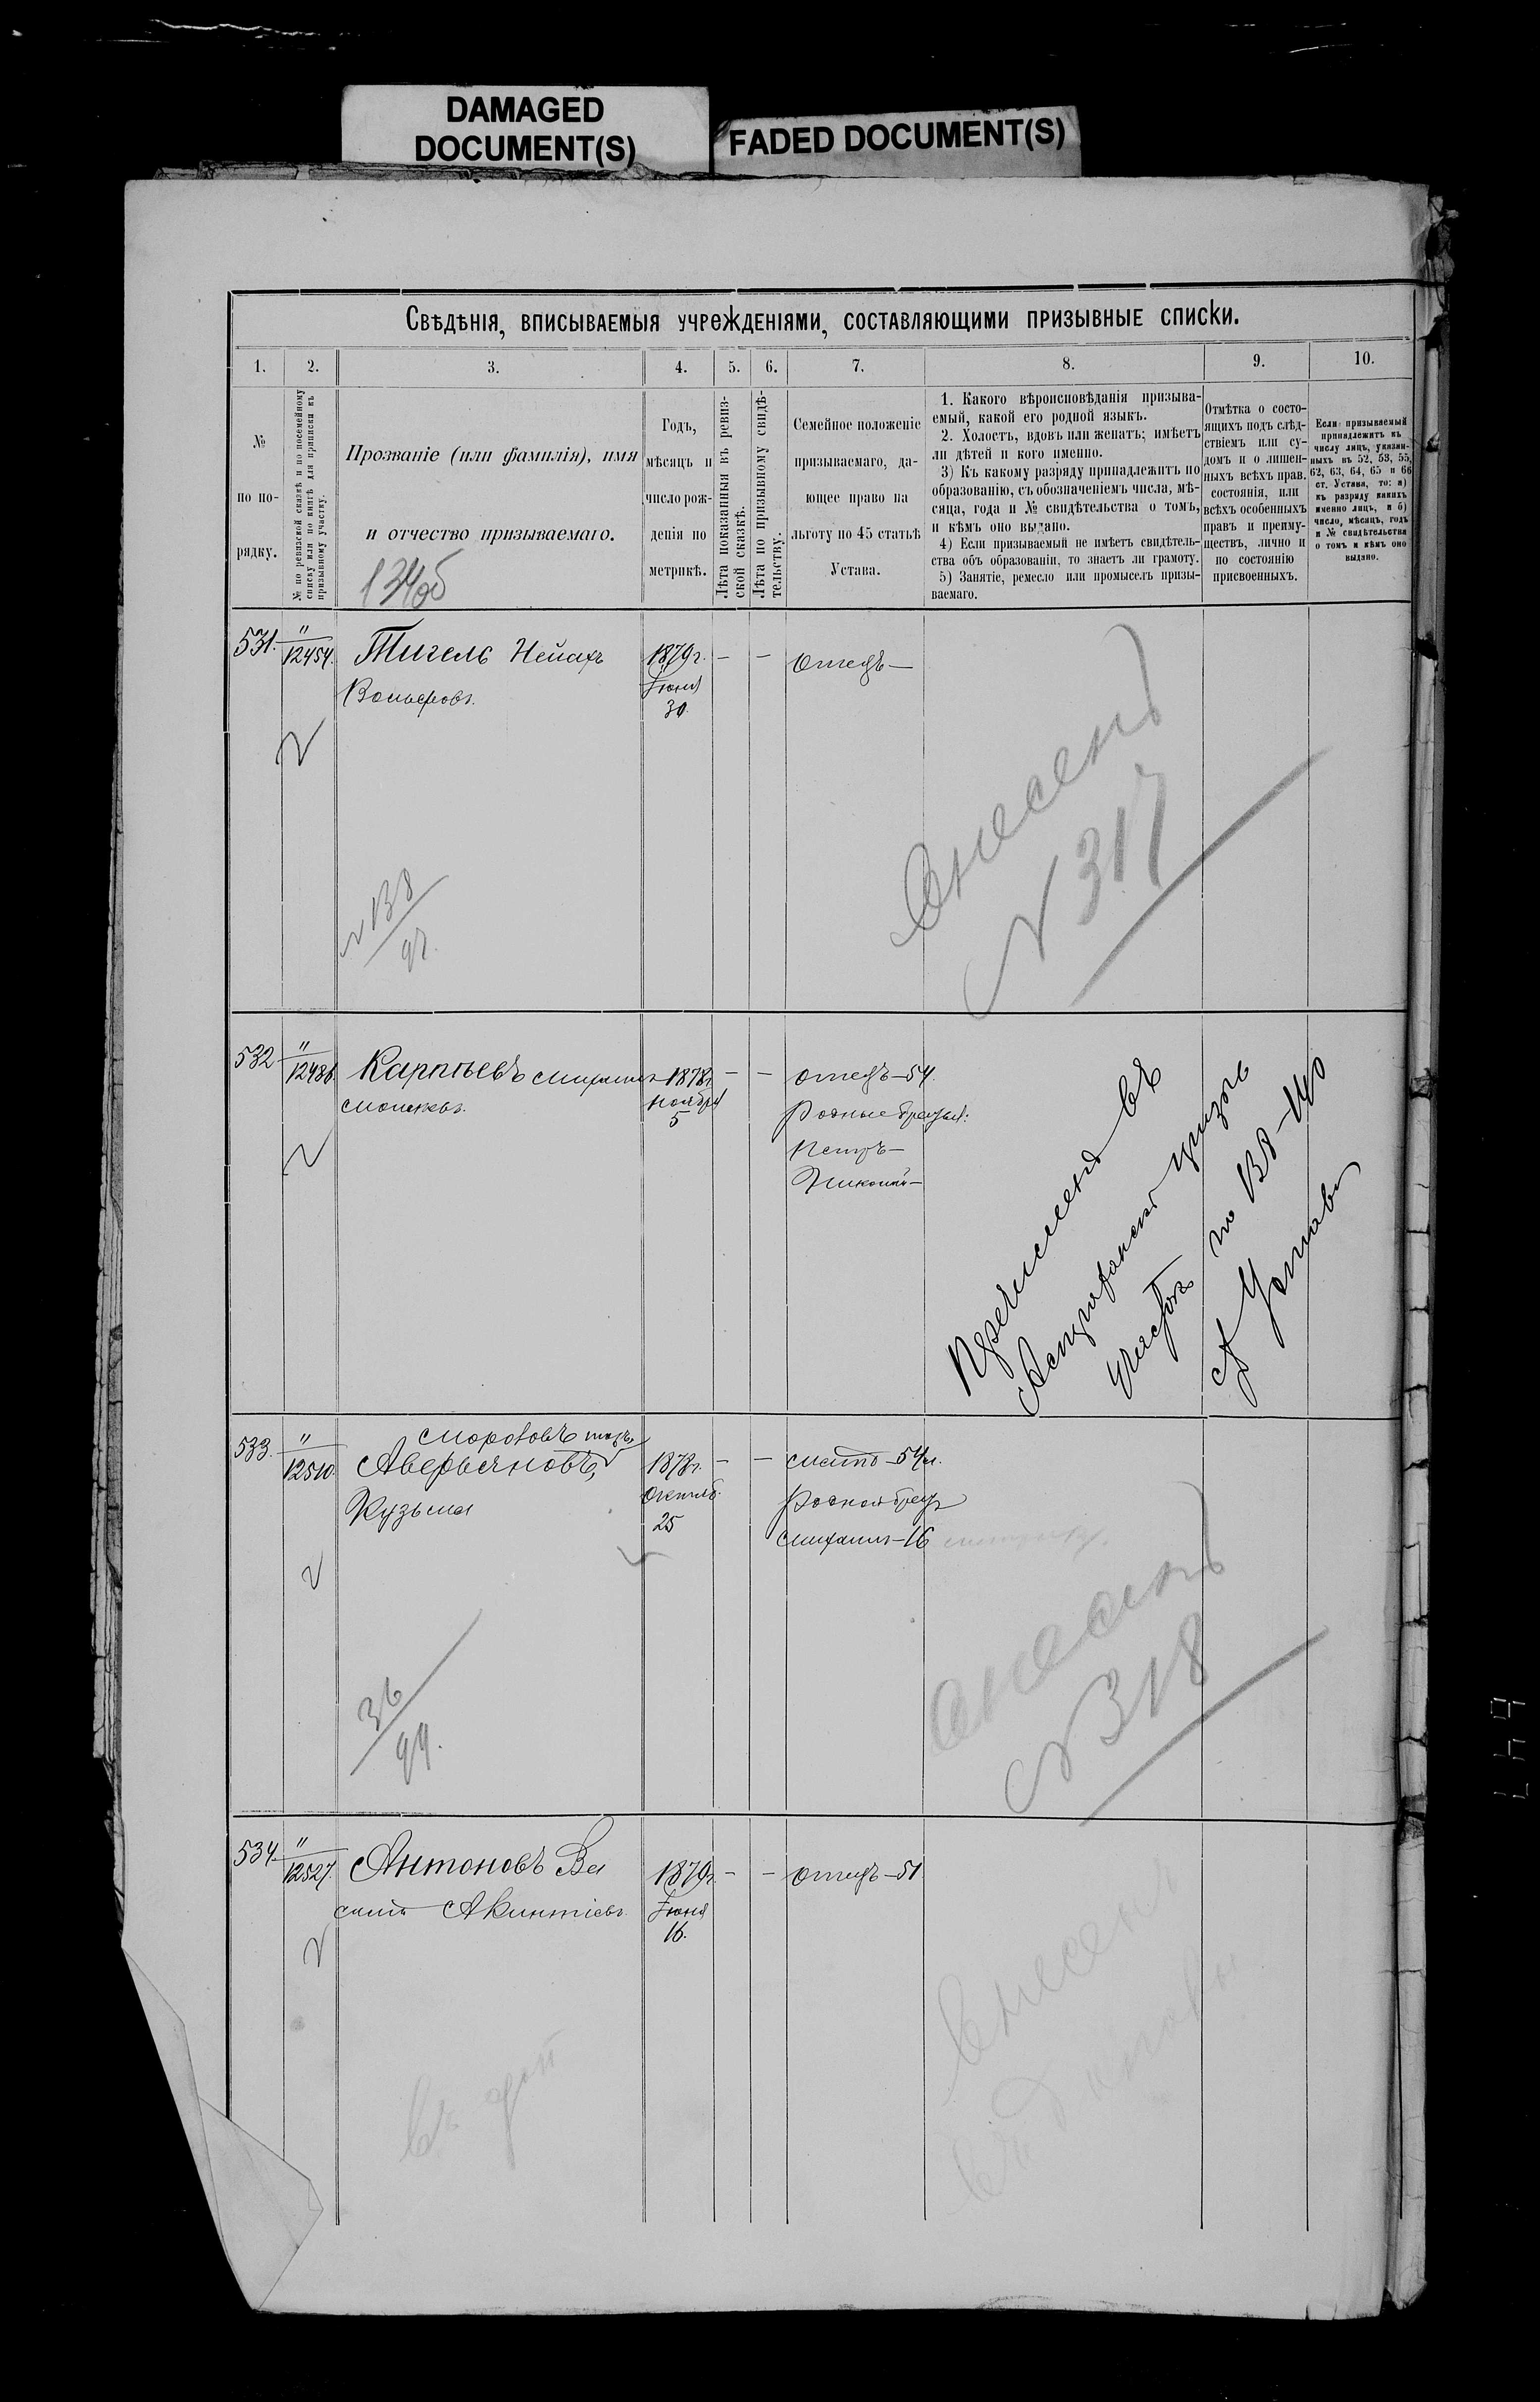 DAMAGED
DOCUMENT(S)
FADED DOCUMENT(S)
Свѣдѣнія, вписываемыя учрежденіями, составляющими призывные списки.
1.
2.
3.
4.
5.
6.
7.
8.
9.
10.
№
по по-
рядку.
№ по ревизской сказкѣ и по посемейному
списку или по книгѣ для приписки къ
призывному участку.
Прозваніе (или фамилія), имя
и отчество призываемаго.
134об
Годъ,
мѣсяцъ и
число рож-
денія по
метрикѣ.
Лѣта показанныя въ ревиз-
ской сказкѣ.
Лѣта по призывному свидѣ-
тельству.
Семейное положеніе
призываемаго, да-
ющее право на
льготу по 45 статьѣ
Устава.
1. Какого вѣроисповѣданія призыва-
емый, какой его родной языкъ.
2. Холостъ, вдовъ или женатъ; имѣетъ
ли дѣтей и кого именно.
3) Къ какому разряду принадлежитъ по
образованію, съ обозначеніемъ числа, мѣ-
сяца, года и № свидѣтельства о томъ,
и кѣмъ оно выдано.
4) Если призываемый не имѣетъ свидѣтель-
ства объ образованіи, то знаетъ ли грамоту.
5) Занятіе, ремесло или промыселъ призы-
ваемаго.
Отмѣтка о состо-
ящихъ подъ слѣд-
ствіемъ или су-
домъ и о лишен-
ныхъ всѣхъ прав.
состоянія, или
всѣхъ особенныхъ
правъ и преиму-
ществъ, лично и
по состоянію
присвоенныхъ.
Если призываемый
принадлежитъ къ
числу лицъ, указан-
ныхъ въ 52, 53, 55,
62, 63, 64, 65 и 66
ст. Устава, то: а)
къ разряду какихъ
именно лицъ, и б)
число, мѣсяцъ, годъ
и № свидѣтельства
о томъ и кѣмъ оно
выдано.
531.
"
12454.
Тигель Нейахъ
Вольфовъ.
1879г.
Іюня
30.
—
—
Отецъ—
Внесенъ
№ 317
138
97.
532
"
12486.
Карпьевъ Михаилъ
Моисеевъ.
1878г.
Ноября
5
—
—
Отецъ—54.
Родные братья:
Петръ—
Николай—
Перечисленъ въ
Астраханскій призыв
участокъ по 138-140
ст Устава
533.
"
12510.
Морозовъ тожъ,
Аверьяновъ,
Кузьма
1878г.
Октяб.
25
—
—
Мать—54л.
Родной братъ
Михаилъ—16
Внесенъ
№ 318
36
99.
534.
"
12527.
Антоновъ Ва
силій Акинтіевъ.
1879г.
Іюня
16.
—
—
Отецъ—51
Внесенъ
647